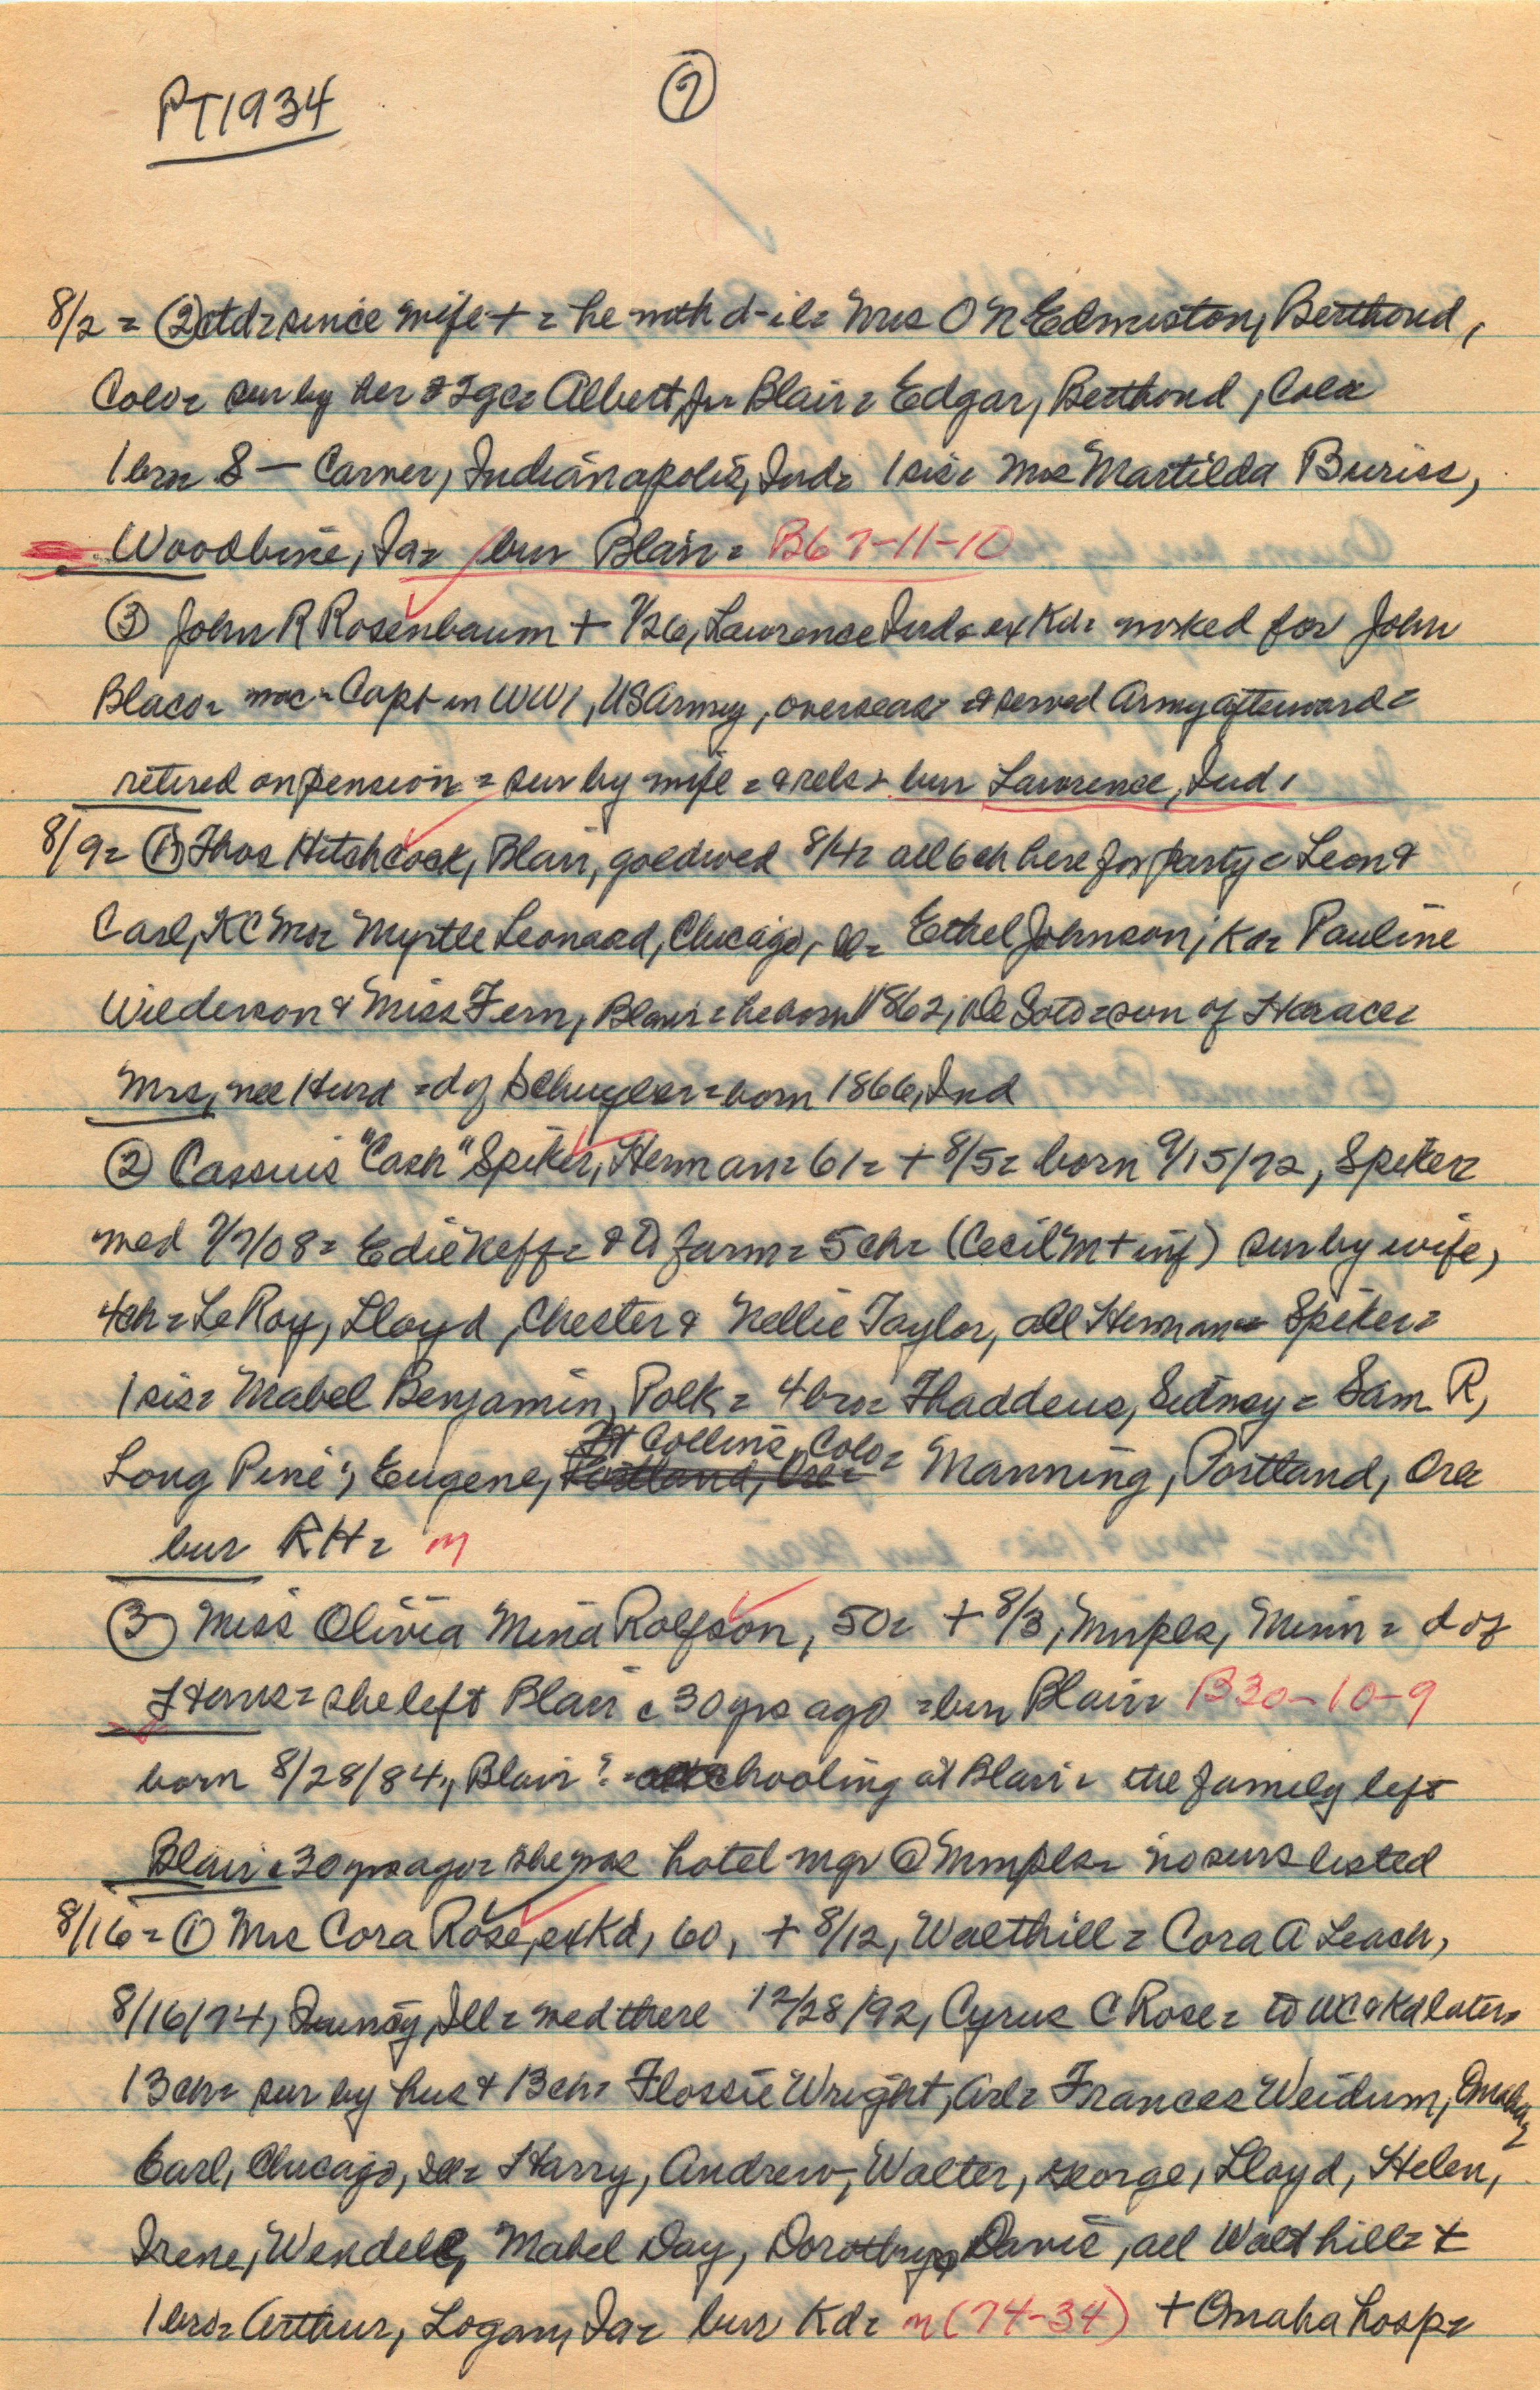 PT1934
7
8/2 = ② ctd = since wife + = he with d-il = Mrs O N Edmiston, Berthoud,
Colo = sur by her & 2gc = Albert Jr Blair = Edgar, Berthoud, Colo
1 bro = S — Carver, Indianapolis, Ind = 1 sis = Mrs Martilda Buriss,
Woodbine, Ia = bur Blair = B67-11-10
③ John R Rosenbaum + 7/26, Lawrence Ind = ex Kd = worked for John
Blaco = mc = Capt in WW1, US Army, overseas = & served Army afterward =
retired on pension = sur by wife = & rels = bur Lawrence, Ind,
8/9 = ① Thos Hitchcock, Blair, goldwed 8/4 = all 6 ch here for party = Leon &
Carl, KC Mo = Myrtle Leonard, Chicago, Ill = Ethel Johnson, Ka = Pauline
Wilderson & Miss Fern, Blair = he born 1862, De Soto = son of Horace =
Mrs, nee Hurd = d of Schuyler = born 1866, Ind
② Cassuis "Cash" Spiker, Herman = 61 = + 8/5 = born 9/15/72, Spiker =
med 7/7/08 = Edie Neff = & to farm = 5 ch = (Cecil M + inf) sur by wife,
4ch = LeRoy, Lloyd, Chester & Nellie Taylor, all Herman = Spiker =
1 sis = Mabel Benjamin, Polk = 4 bro = Thaddeus, Sidney = Sam R,
Long Pine; Eugene, Portland, Ore = Ft Collins, Colo = Manning, Portland, Ore
bur RH = m
③ Miss Olivia Mina Rolfson, 50 = + 8/3, Mnpls, Minn = d of
Hans = she left Blair c 30 yrs ago = bur Blair = B30-10-9
born 8/28/84, Blair? = schooling at Blair = the family left
Blair c 30 yrs ago = she was hotel mgr @ Mnpls = no surs listed
8/16 = ① Mrs Cora Rose, ex Kd, 60, + 8/12, Walthill = Cora A Leach,
8/16/74, Ill = med there 12/28/92, Cyrus C Rose = to WC & Kd later =
13 ch = sur by hus & 13 ch = Flossie Wright, Arl = Frances Weidum, Omaha =
Earl, Chicago, Ill = Harry, Andrew, Walter, George, Lloyd, Helen,
Irene, Wendell, Mabel Day, Dorothy Davis, all Walthill = &
1 bro = Arthur, Logan, Ia = bur Kd = m (74-34) + Omaha hosp =